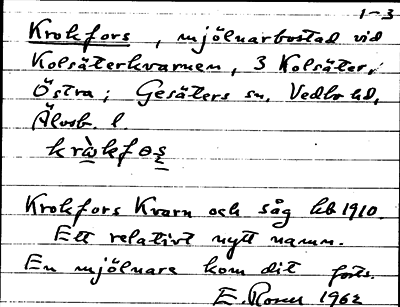 1-3
Krokfors, mjölnarbostad vid
Kolsäterkvarnen, 3 Kolsäter,
Östra; Gesäters sn, Vedbo hd,
Älvsb. l.
krὼkfɷs̠
Krokfors Kvarn och såg hb 1910.
Ett relativt nytt namn.
En mjölnare kom dit forts.
E. Rosen 1962